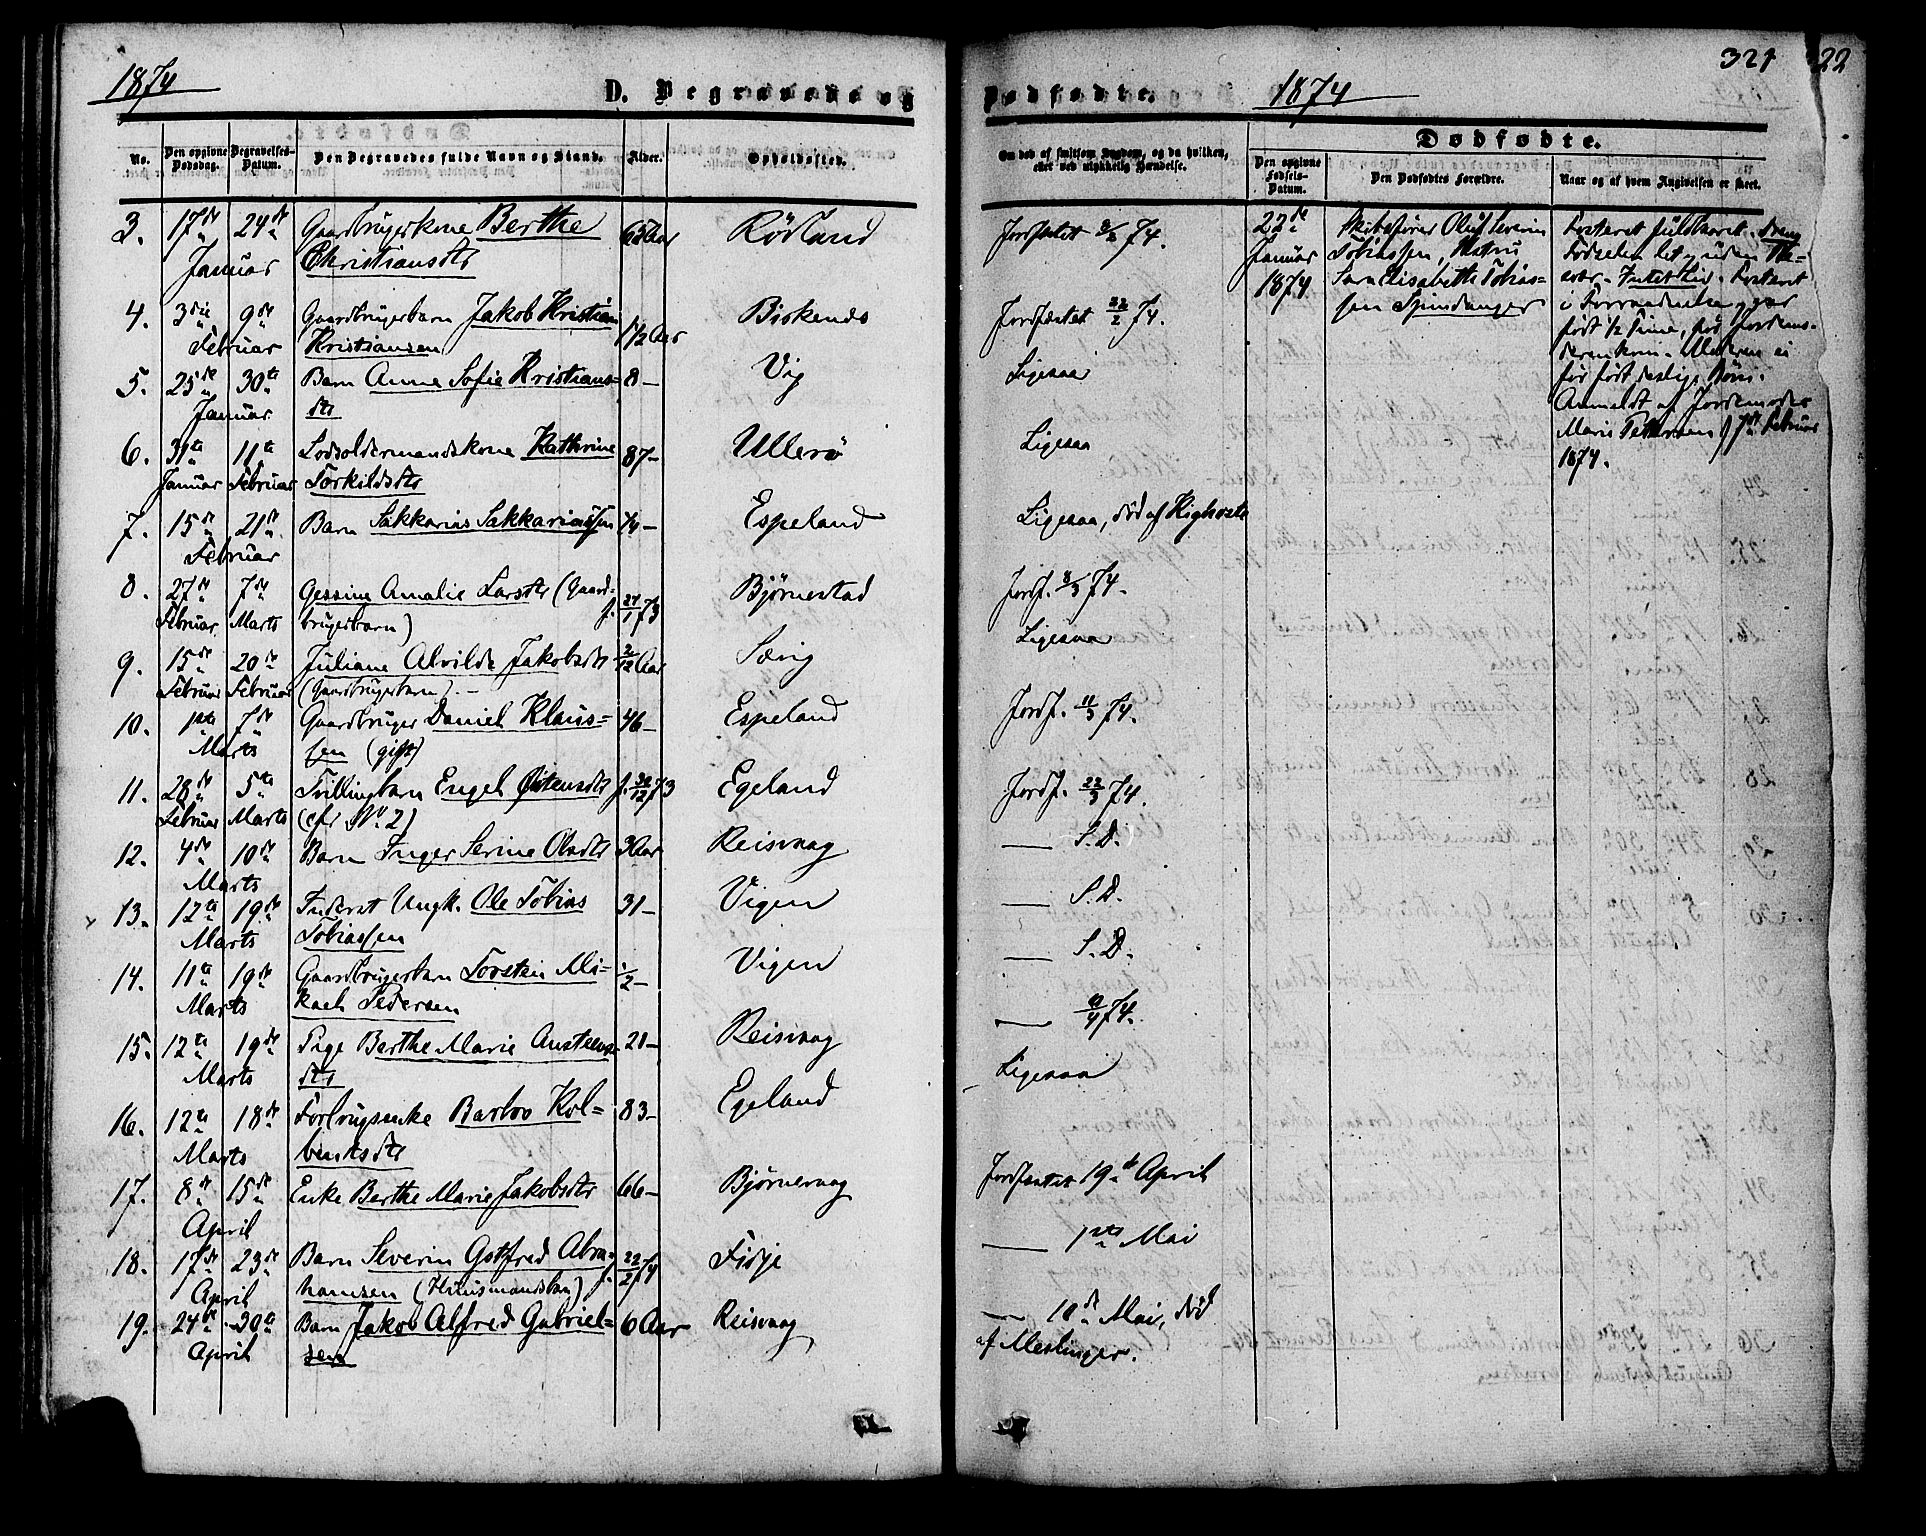 1874
D. Begravede og
No.
Den opgivne Dødsdag.
Begravelses-Datum.
Den Begravedes fulde Navn og Stand.
Alder.
Opholdssted.
3. 17de 24de Gaardbrugerkone Berthe 65 Aar Rösland
Januar Christiansdtr
4. 3die 9de Gaardbrugerbarn Jakob Kristian 1 1/2 Aar
Februar Kristiansen
5. 25de 30te Barn Anne Sofie Kristians= 8 — Vig
Januar dtr
6. 31te 11te Lodsoldermandskone Kathrine 87 — Ullerö
Januar Februar Torkildsdtr
7. 15de 21de Barn Sakkarias Sakkariassen Espeland
Februar
8. 27de 7de Gessine Amalie Larsdtr (Gaard= f. 27/1 73 Bjørnestad
Februar Marts brugerbarn)
9. 15de 20de Juliane Alvilde Jakobsdtr 2/12 Aar Sævig
Februar Februar (Gaardbrugerbarn). —
10. 1ste 7de Gaardbruger Daniel Klaus= 46 — Espeland
Marts sen (gift)
11. 28de 5te Tvillingbarn Engel Østensdtr f. 30/12 73 Egeland
Februar Marts (cfr No 2)
12. 4de 10de Barn Inger Serine Olsdtr 3 Aar Reisvaag
Marts
13. 12te 19de Inderst Ungk. Ole Tobias 31 — Vigen
Marts Tobiassen
14. 11te 19de Gaardbrugerbarn Torstein Mi= 1/2 — Vigen
Marts kael Pedersen
15. 12te 19de Pige Berthe Marie Austens= 21 — Reisvaag
Marts dtr
16. 12te 18de Forbrugsenke Barbro Kol= 83 — Egeland
Marts beinsdtr
17. 8de 15de Enke Berthe Marie Jakobsdtr 66 — Bjørnevaag
April
18. 17de 23de Barn Severin Gotfred Abra= f. 22/2 74 Fidje
April hamsen (Huusmandsbarn)
19. 24de 30te Barn Jakob Alfred Gabriel= 6 Aar Reisvaag
April sen
321
22
Dødfødte.
1874
Om død af smitsom Sygdom, og da hvilken,
eller ved ulykkelig Hændelse.
Dødfødte.
Den opgivne Fødsels-Datum.
Den Dødfødtes Forældre.
Naar og af hvem Angivelsen er skeet.
Jordfæstet 74.
Jordfæstet 22/2 74.
Ligesaa
Ligesaa
Ligesaa, død af Kighoste
Jordf. 8/3 74.
Ligesaa
Jordf. 11/3 74.
Jordf. 22/3 74.
— S. D.
— S. D.
— S. D.
— 74.
Ligesaa
Jordfæstet 19de April
— 1ste Mai
— 10de Mai, død
af Meslinger.
22de Januar 1874
Skibsfører Oluf Severin
Tobiassen, Hustru
Sara Elisabeth Tobias=
sen Spindsanger
Fosteret fuldbaaret. Dreng
Fødselen let og uden
Intet Liv. Fosteret
i Forraadnelse, var
født 1/2 Time, før Jordemo-
deren kom. Moderen ei
før født deslige Børn.
Anmeldt af Jordemoder
Marie Pettersen 7de Februar
1874.